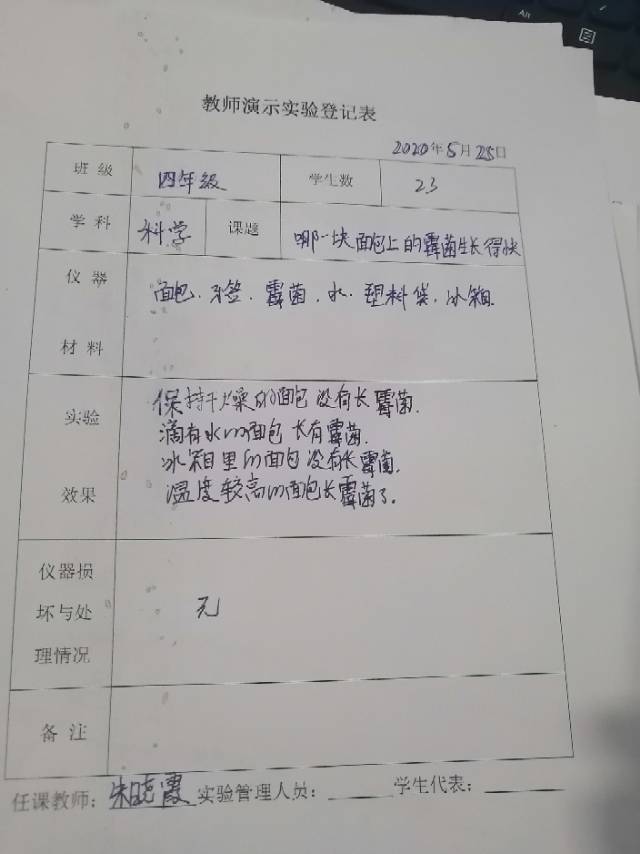 教师演示实验登记表
2020年5月25日
班级 四年级 学生数 23
学科 科学 课题 哪一块面包上的霉菌生长得快
仪器 面包、牙签、霉菌、水、塑料袋、冰箱.
材料
保持干燥的面包没有长霉菌.
实验 滴有水的面包长有霉菌.
冰箱里的面包没有长霉菌.
效果 温度较高的面包长霉菌了.
仪器损
坏与处 无
理情况
备注
任课教师：朱晓霞 实验管理人员： 学生代表：
Alt